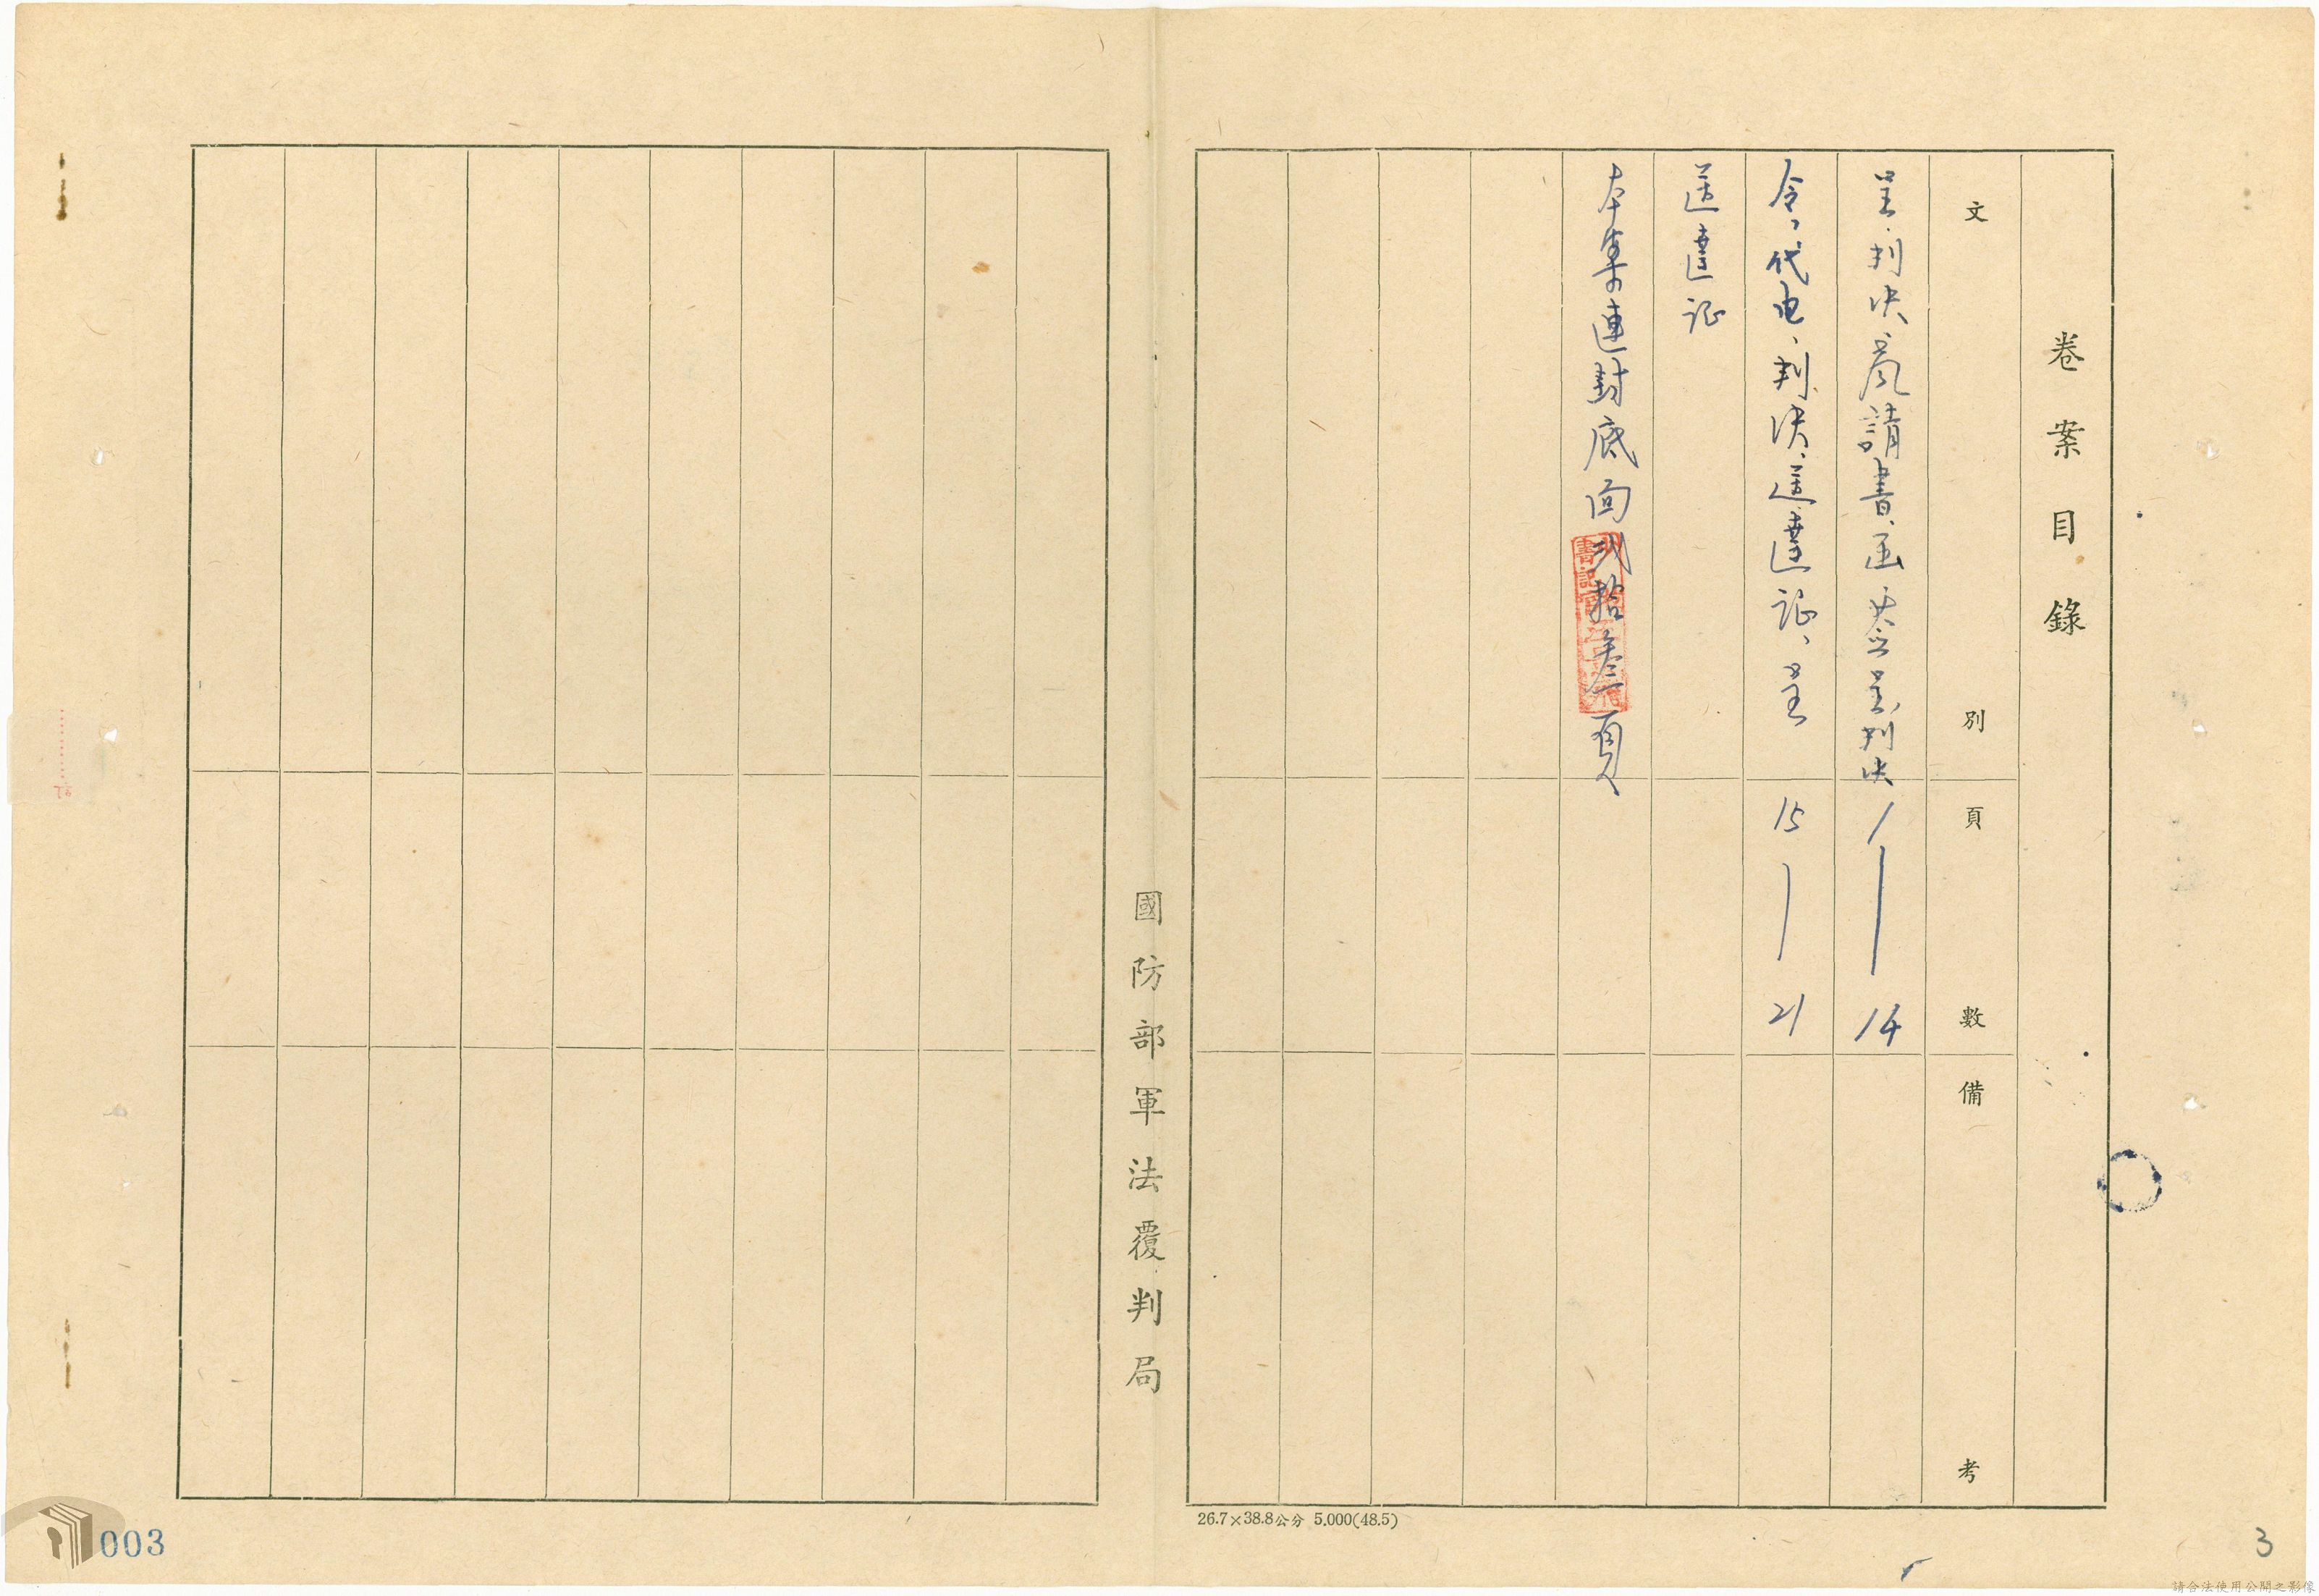 卷案目錄
文別
頁數
備考
呈、判決、聲請書、函、簽呈、判決
1—14
令、代电、判決、送達证、呈
15—21
送達证
本案連封底面弍拾叁頁
書記官
國防部軍法覆判局
26.7×38.8公分 5.000(48.5)
003
3
請合法使用公開之影像